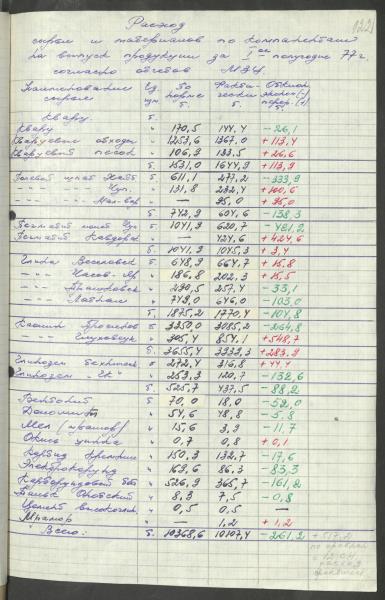 122
Расход
сырья и материалов по компонентам
на выпуск продукции за I ое полугодие 77 г.
согласно отчетов МЗЧ.
Наименование сырья Ед. изм По норме т. Факти- чески т. Отклон эконом(-) перер.(+) т.
Кварц т.
Кварц " 170,5 144,4 -26,1
Кварцевые отходы " 1253,6 1367,0 +113,4
Кварцевый песок " 106,9 133,5 +26,6
т. 1531,0 1644,9 +113,9
Полевой шпат т. 611,1 277,2 -333,9
" 131,8 232,4 +100,6
— 95,0 +95,0
т. 742,9 604,6 -138,3
Пегматит т. 1041,9 620,7
Пегматит " — 424,6 +424,6
т. 1041,9 1045,3 +3,4
Глина Веселовск т. 648,9 664,7 +15,8
Часов-Яр " 186,8 202,3 +15,5
" 290,5 257,4 -33,1
Латнен " 749,0 646,0 -103,0
т. 1875,2 1770,4 -104,8
Каолин Просянов т. 3350,0 3085,2 -264,8
Глуховецк " 305,4 854,1 +548,7
т. 3655,4 3939,3 +283,9
Глинозем технич " 272,4 316,8 +44,4
Глинозем " 253,3 120,7 -132,6
т. 525,7 437,5 -88,2
Бентонит т. 70,0 18,0 -52,0
Доломит " 54,6 48,8 -5,8
Мел " 15,6 3,9 -11,7
Окись цинка " 0,7 0,8 +0,1
Карбид кремния " 150,3 132,7 -17,6
Электрокорунд " 169,6 86,3 -83,3
" 526,9 365,7 -161,2
" 8,3 7,5 -0,8
Цемент " 0,5 0,5 —
Мрамор — 1,2 +1,2
Всего: т. 10368,6 10107,4 -261,2
+517,2